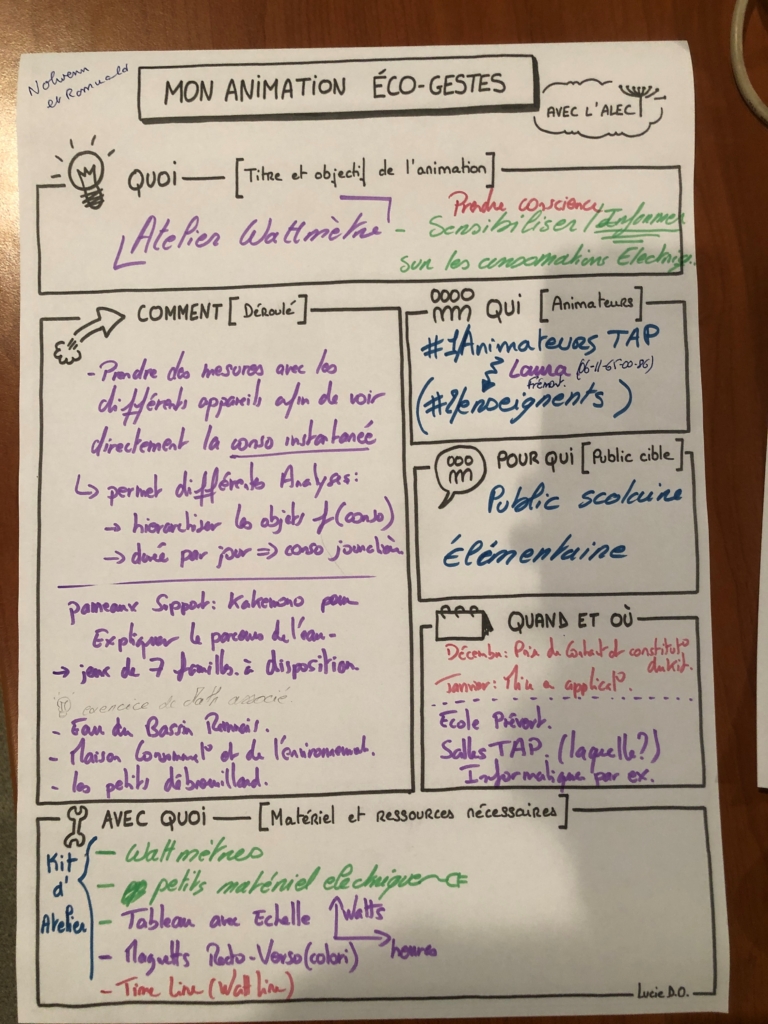 Nolwenn
et Romuald
MON ANIMATION ÉCO-GESTES
AVEC L'ALEC
QUOI [Titre et objectif de l'animation]
Prendre conscience
Atelier Wattmètre - Sensibiliser / Informer
sur les consomations Electriq.
COMMENT [Déroulé]
- Prendre des mesures avec les
différents appareils afin de voir
directement la conso instantanée
↳ permet différentes Analyses:
→ hiérarchiser les objets f(conso)
→ durée par jour => conso journalière
panneaux Support: Kakemono pour
Expliquer le parcours de l'eau-
→ jeux de 7 familles à disposition
exercice de Math associé
- Eau du Bassin Rennais.
- Maison Consommat° et de l'environnement.
- les petits débrouillard.
QUI [Animateurs]
#1/Animateurs TAP
Laura (06-11-65-00-86)
Prévert.
(#2/enseignents)
POUR QUI [Public cible]
Public scolaire
Élémentaire
QUAND ET OÙ
Décembre: Prise de Contact et constitut°
du Kit.
Janvier: Mise en applicat°.
Ecole Prévert.
Salles TAP. (laquelle?)
Informatique par ex.
AVEC QUOI [Matériel et ressources nécessaires]
Kit
d'
Atelier
- Wattmètres
- petits matériel electrique
- Tableau avec Echelle Watts
heures
- Maquetts Recto-Verso (colori)
- Time Line (Watt line)
Lucie D.O.